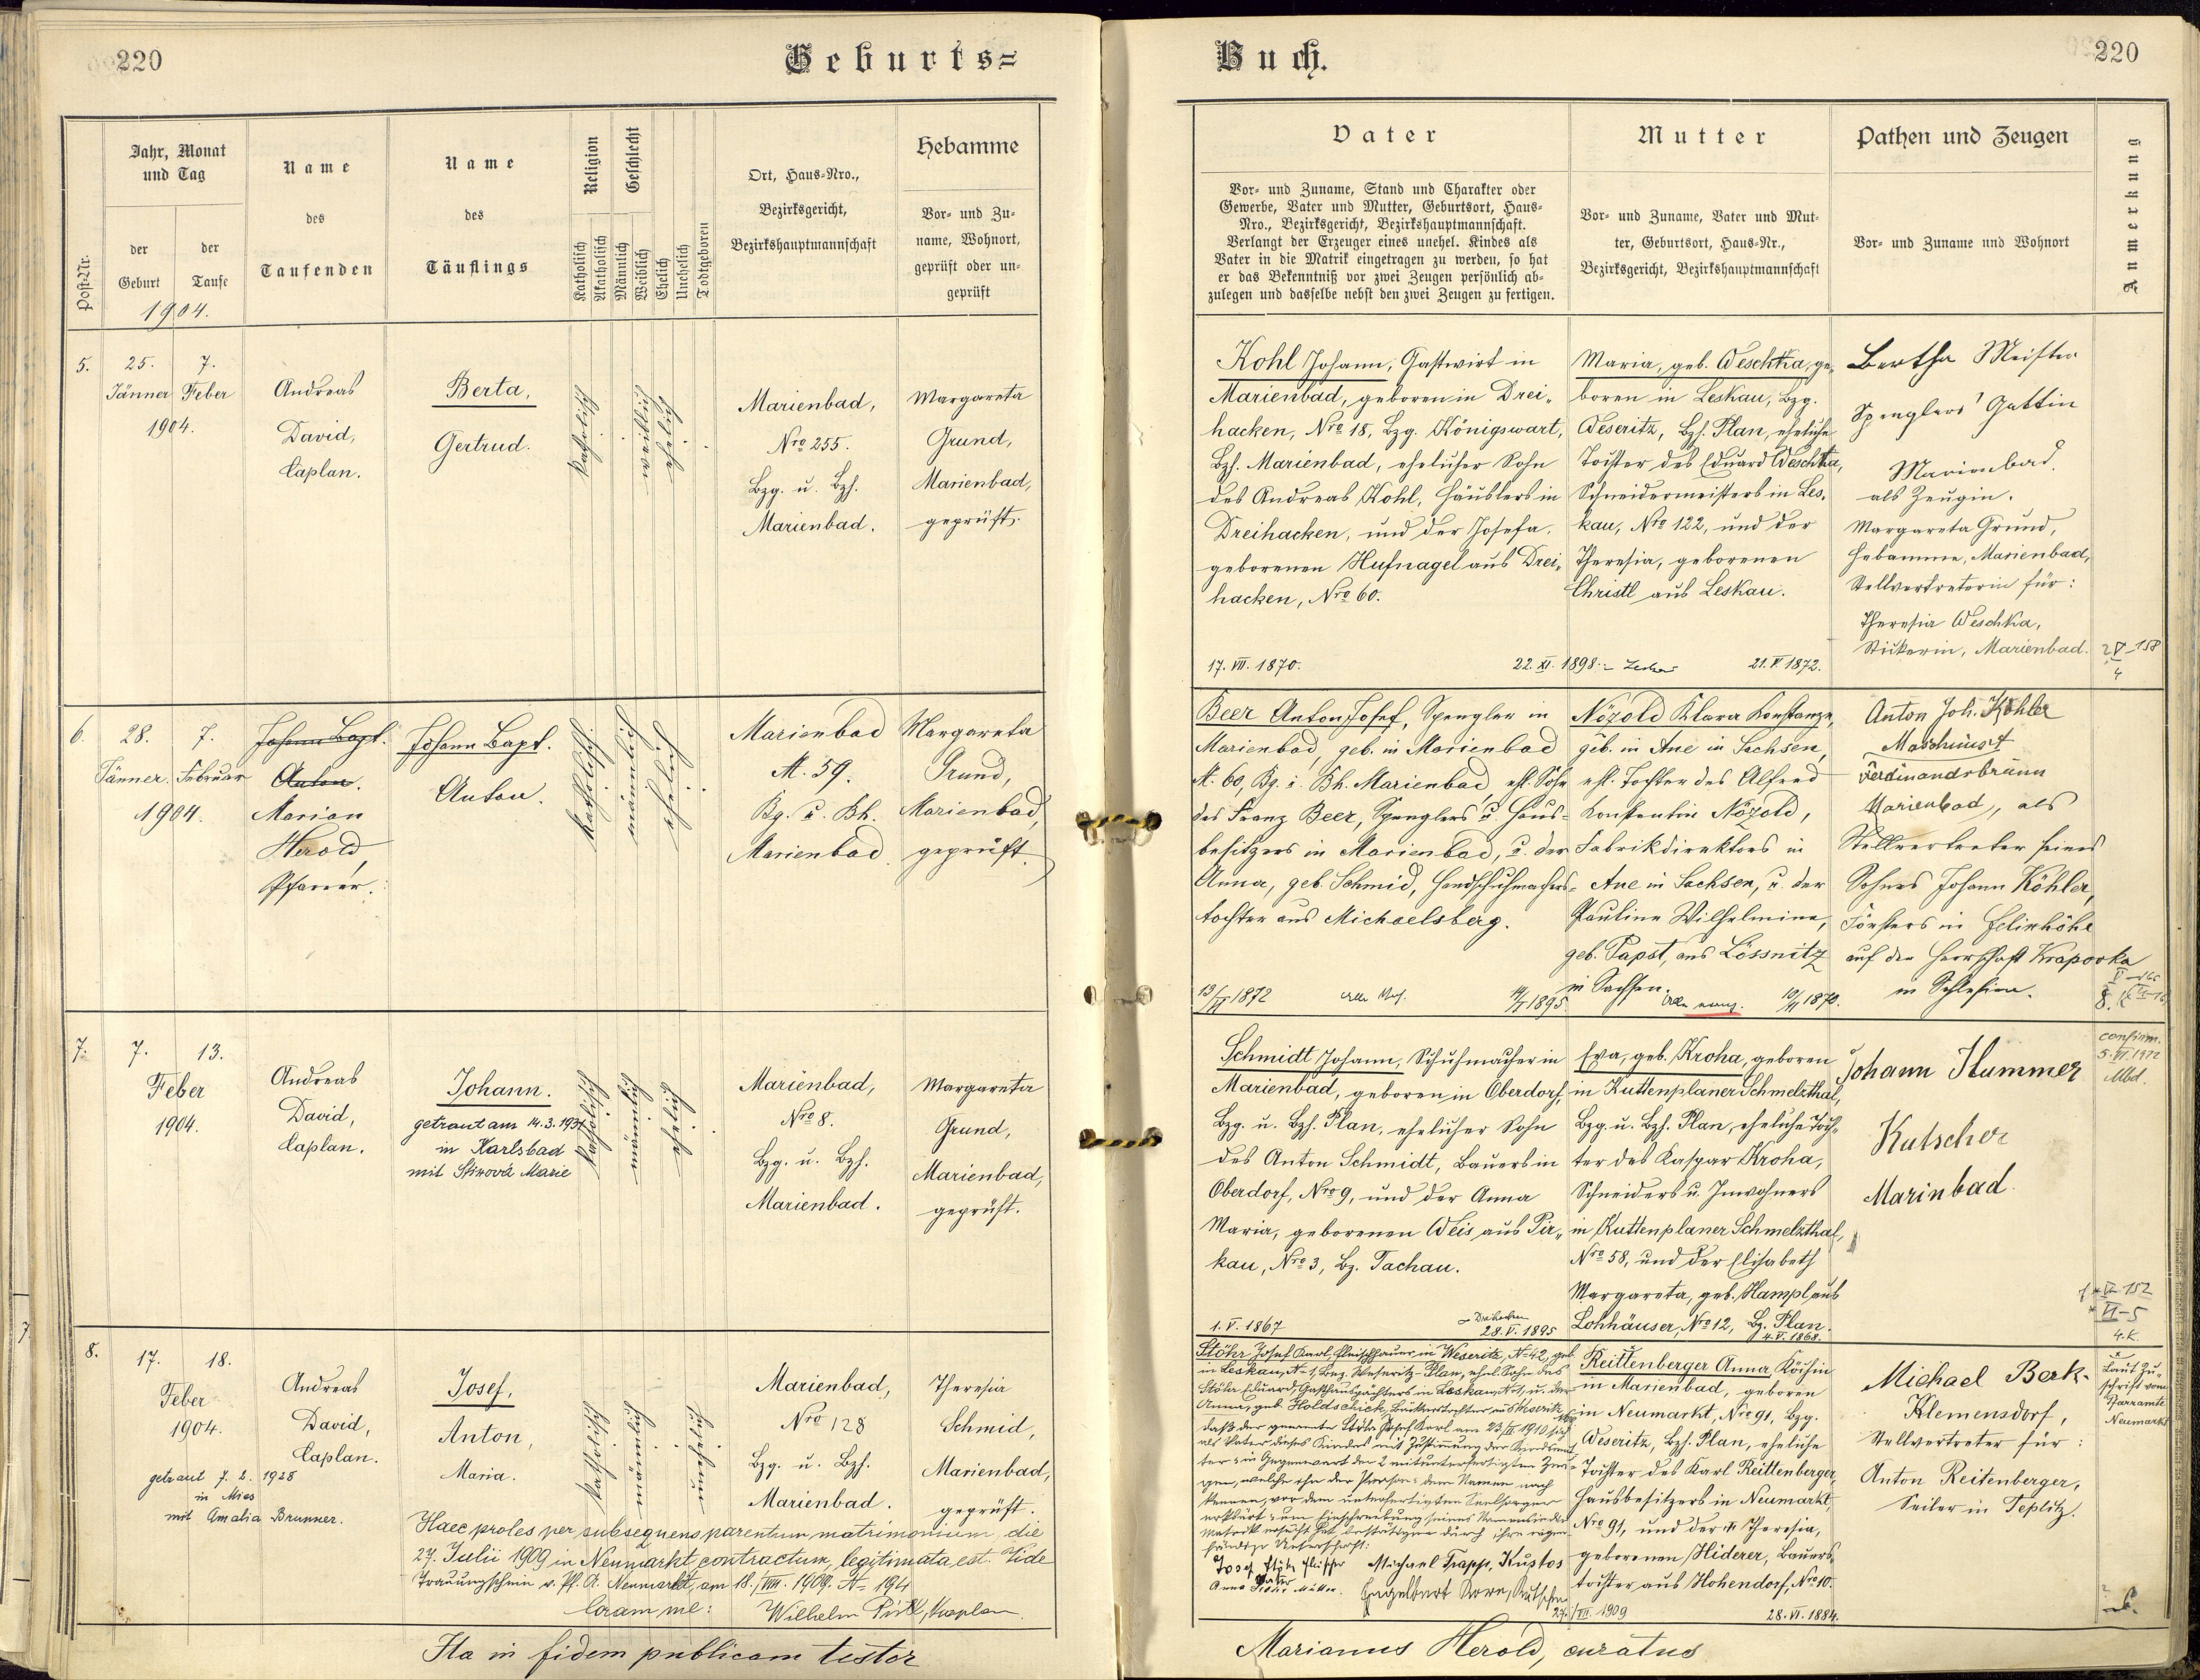 220
Geburts=
Post-Nr.
Jahr, Monat
und Tag
der
Geburt
der
Taufe
1904.
Name
des
Taufenden
Name
des
Täuflings
Religion
Katholisch
Akatholisch
Geschlecht
Männlich
Weiblich
Ehelich
Unehelich
Todtgeboren
Ort, Haus-Nro.,
Bezirksgericht,
Bezirkshauptmannschaft
Hebamme
Vor- und Zu-
name, Wohnort,
geprüft oder un-
geprüft
5.
25.
7.
Jänner Feber
1904.
Andreas
David,
Caplan.
Berta,
Gertrud.
katholisch
weiblich
ehelich
Marienbad,
Nro 255.
Bzg. u. Bzh.
Marienbad.
Margareta
Grund,
Marienbad,
geprüft.
6.
28.
7.
Jänner. Februar
1904.
Johann Bapt.
Anton.
Marian
Herold,
Pfarrer.
Johann Bapt.
Anton.
katholisch
männlich
ehelich
Marienbad
N. 59.
Bg. u. Bh.
Marienbad.
Margareta
Grund,
Marienbad,
geprüft.
7.
7.
13.
Feber
1904.
Andreas
David,
Caplan.
Johann.
getraut am 14.3.1931
in Karlsbad
mit Stirová Marie
katholisch
männlich
ehelich
Marienbad,
Nro 8.
Bzg. u. Bzh.
Marienbad.
Margareta
Grund,
Marienbad,
geprüft.
8.
17.
18.
Feber
1904.
getraut 7. 2. 1928
in Mies
mit Amalia Brunner.
Andreas
David,
Caplan.
Josef,
Anton,
Maria.
katholisch
männlich
unehelich
Marienbad,
Nro 128
Bzg. u. Bzh.
Marienbad.
Theresia
Schmid,
Marienbad,
geprüft.
Haec proles per subsequens parentum matrimonium, die
27. Julii 1909 in Neumarkt contractum, legitimata est. Vide
Trauungsschein v. Pf. A. Neumarkt, am 18./VIII. 1909. N. 194
Coram me: Wilhelm Pirtl, Kaplan.
Ita in fidem publicam testor
Buch.
220
Vater
Vor- und Zuname, Stand und Charakter oder
Gewerbe, Vater und Mutter, Geburtsort, Haus-
Nro., Bezirksgericht, Bezirkshauptmannschaft.
Verlangt der Erzeuger eines unehel. Kindes als
Vater in die Matrik eingetragen zu werden, so hat
er das Bekenntniß vor zwei Zeugen persönlich ab-
zulegen und dasselbe nebst den zwei Zeugen zu fertigen.
Mutter
Vor- und Zuname, Vater und Mut-
ter, Geburtsort, Haus-Nr.,
Bezirksgericht, Bezirkshauptmannschaft
Pathen und Zeugen
Vor- und Zuname und Wohnort
Anmerkung
Kohl Johann, Gastwirt in
Marienbad, geboren in Drei-
hacken, Nro 18, Bzg. Königswart,
Bzh. Marienbad, ehelicher Sohn
des Andreas Kohl, Häuslers in
Dreihacken, und der Josefa,
geborenen Hufnagel aus Drei-
hacken, Nro 60.
17. VII. 1870.
22. XI. 1898
Maria, geb. Weschka, ge-
boren in Leskau, Bzg.
Weseritz, Bzh. Plan, eheliche
Tochter des Eduard Weschka,
Schneidermeisters in Les-
kau, Nro 122, und der
Theresia, geborenen
Christl aus Leskau.
21. V. 1872.
Bertha Meister
Spenglers Gattin
Marienbad.
als Zeugin.
Margareta Grund,
Hebamme, Marienbad,
Stellvertreterin für:
Theresia Weschka,
Stickerin, Marienbad.
Beer Anton Josef, Spengler in
Marienbad, geb. in Marienbad
N. 60, Bg. u. Bh. Marienbad, ehl. Sohn
des Franz Beer, Spenglers u. Haus-
besitzers in Marienbad, u. der
Anna, geb. Schmid, Handschuhmachers-
tochter aus Michaelsberg.
Nözold Klara Konstanze,
geb. in Aue in Sachsen,
ehl. Tochter des Alfred
Konstantin Nözold,
Fabrikdirektors in
Aue in Sachsen, u. der
Pauline Wilhelmine,
geb. Papst, aus Lössnitz
in Sachsen.
Anton Joh. Köhler
Maschinist
Ferdinandsbrunn
Marienbad, als
Stellvertreter seines
Sohnes Johann Köhler,
Försters in Felixhöhe
auf der Herrschaft Krapovka
in Schlesien.
Schmidt Johann, Schuhmacher in
Marienbad, geboren in Oberdorf,
Bzg. u. Bzh. Plan, ehelicher Sohn
des Anton Schmidt, Bauers in
Oberdorf, Nro 9, und der Anna
Maria, geborenen Weis aus Pir-
kau, Nro 3, Bz. Tachau.
1. V. 1867
Dreihacken
28. V. 1895
Eva, geb. Kroha, geboren
in Kuttenplaner Schmelzthal,
Bzg. u. Bzh. Plan, eheliche Toch-
ter des Kaspar Kroha,
Schneiders u. Inwohners
in Kuttenplaner Schmelzthal,
Nro 58, und der Elisabeth
Margareta, geb. Hampl aus
Lohhäuser, Nro 12, Bz. Plan.
4. V. 1868.
Johann Hummer
Kutscher
Marinbad.
confirm.
5. VI. 1922
Mbd.
VI-5
4. K.
Stöhr Josef Karl, Fleischhauer in Weseritz, N. 42, geb.
in Leskau, N. 1, Bez. Weseritz-Plan, ehel. Sohn des
Stöhr Eduard, Gasthauspächters in Leskau, N. 1, u. der
Anna, geb. Holdschick, Bäckerstochter in
daß der genannte Stöhr Josef Karl am 23/III 1910 sich
als Vater dieses Kindes mit Zustimmung der Kindesmut-
ter u. in Gegenwart der 2 mitunterfertigten Zeu-
gen, welche ihn der Person u. dem Namen nach
kennen, vor dem unterfertigten Seelsorger
erklärt u. um Einschreibung seines Namens in die
Matrik ersucht hat, bestätigen durch ihre eigen-
händige Unterschrift:
Josef Stöhr Fleischer Michael Trapp, Kustos
Vater
Anna Stöhr Mutter. Engelbert
27./VII. 1909
Reittenberger Anna, Köchin
in Marienbad, geboren
in Neumarkt, Nro 91, Bzg.
Weseritz, Bzh. Plan, eheliche
Tochter des Karl Reittenberger,
Hausbesitzers in Neumarkt,
Nro 91, und der Theresia,
geborenen Hiderer, Bauers-
tochter aus Hohendorf, Nro 10.
28. VI. 1884.
Michael Berk-
Klemensdorf,
Stellvertreter für:
Anton Reitenberger,
Seiler in Teplitz.
Laut Zu-
schrift vom
Pfarramte
Neumarkt
Marianus Herold, curatus